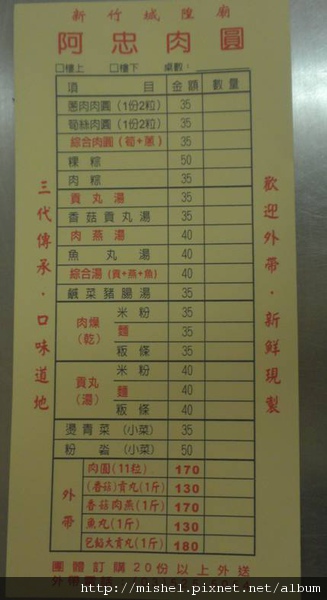 新竹城隍廟
阿忠肉圓
□樓上 □樓下 桌數：
項目 金額 數量
蔥肉肉圓(1份2粒) 35
筍絲肉圓(1份2粒) 35
綜合肉圓(筍+蔥) 35
粿粽 50
肉粽 35
貢丸湯 35
香菇貢丸湯 35
肉燕湯 40
魚丸湯 40
綜合湯(貢+燕+魚) 40
鹹菜豬腸湯 35
肉燥(乾) 米粉 35
麵 35
粄條 35
貢丸(湯) 米粉 40
麵 40
粄條 40
燙青菜(小菜) 35
粉腸(小菜) 50
外帶 肉圓(11粒) 170
(香菇)貢丸(1斤) 130
香菇肉燕(1斤) 170
魚丸(1斤) 130
包餡大貢丸(1斤) 180
團體訂購20份以上外送
三代傳承·口味道地
歡迎外帶·新鮮現製
http://mishel.pixnet.net/album